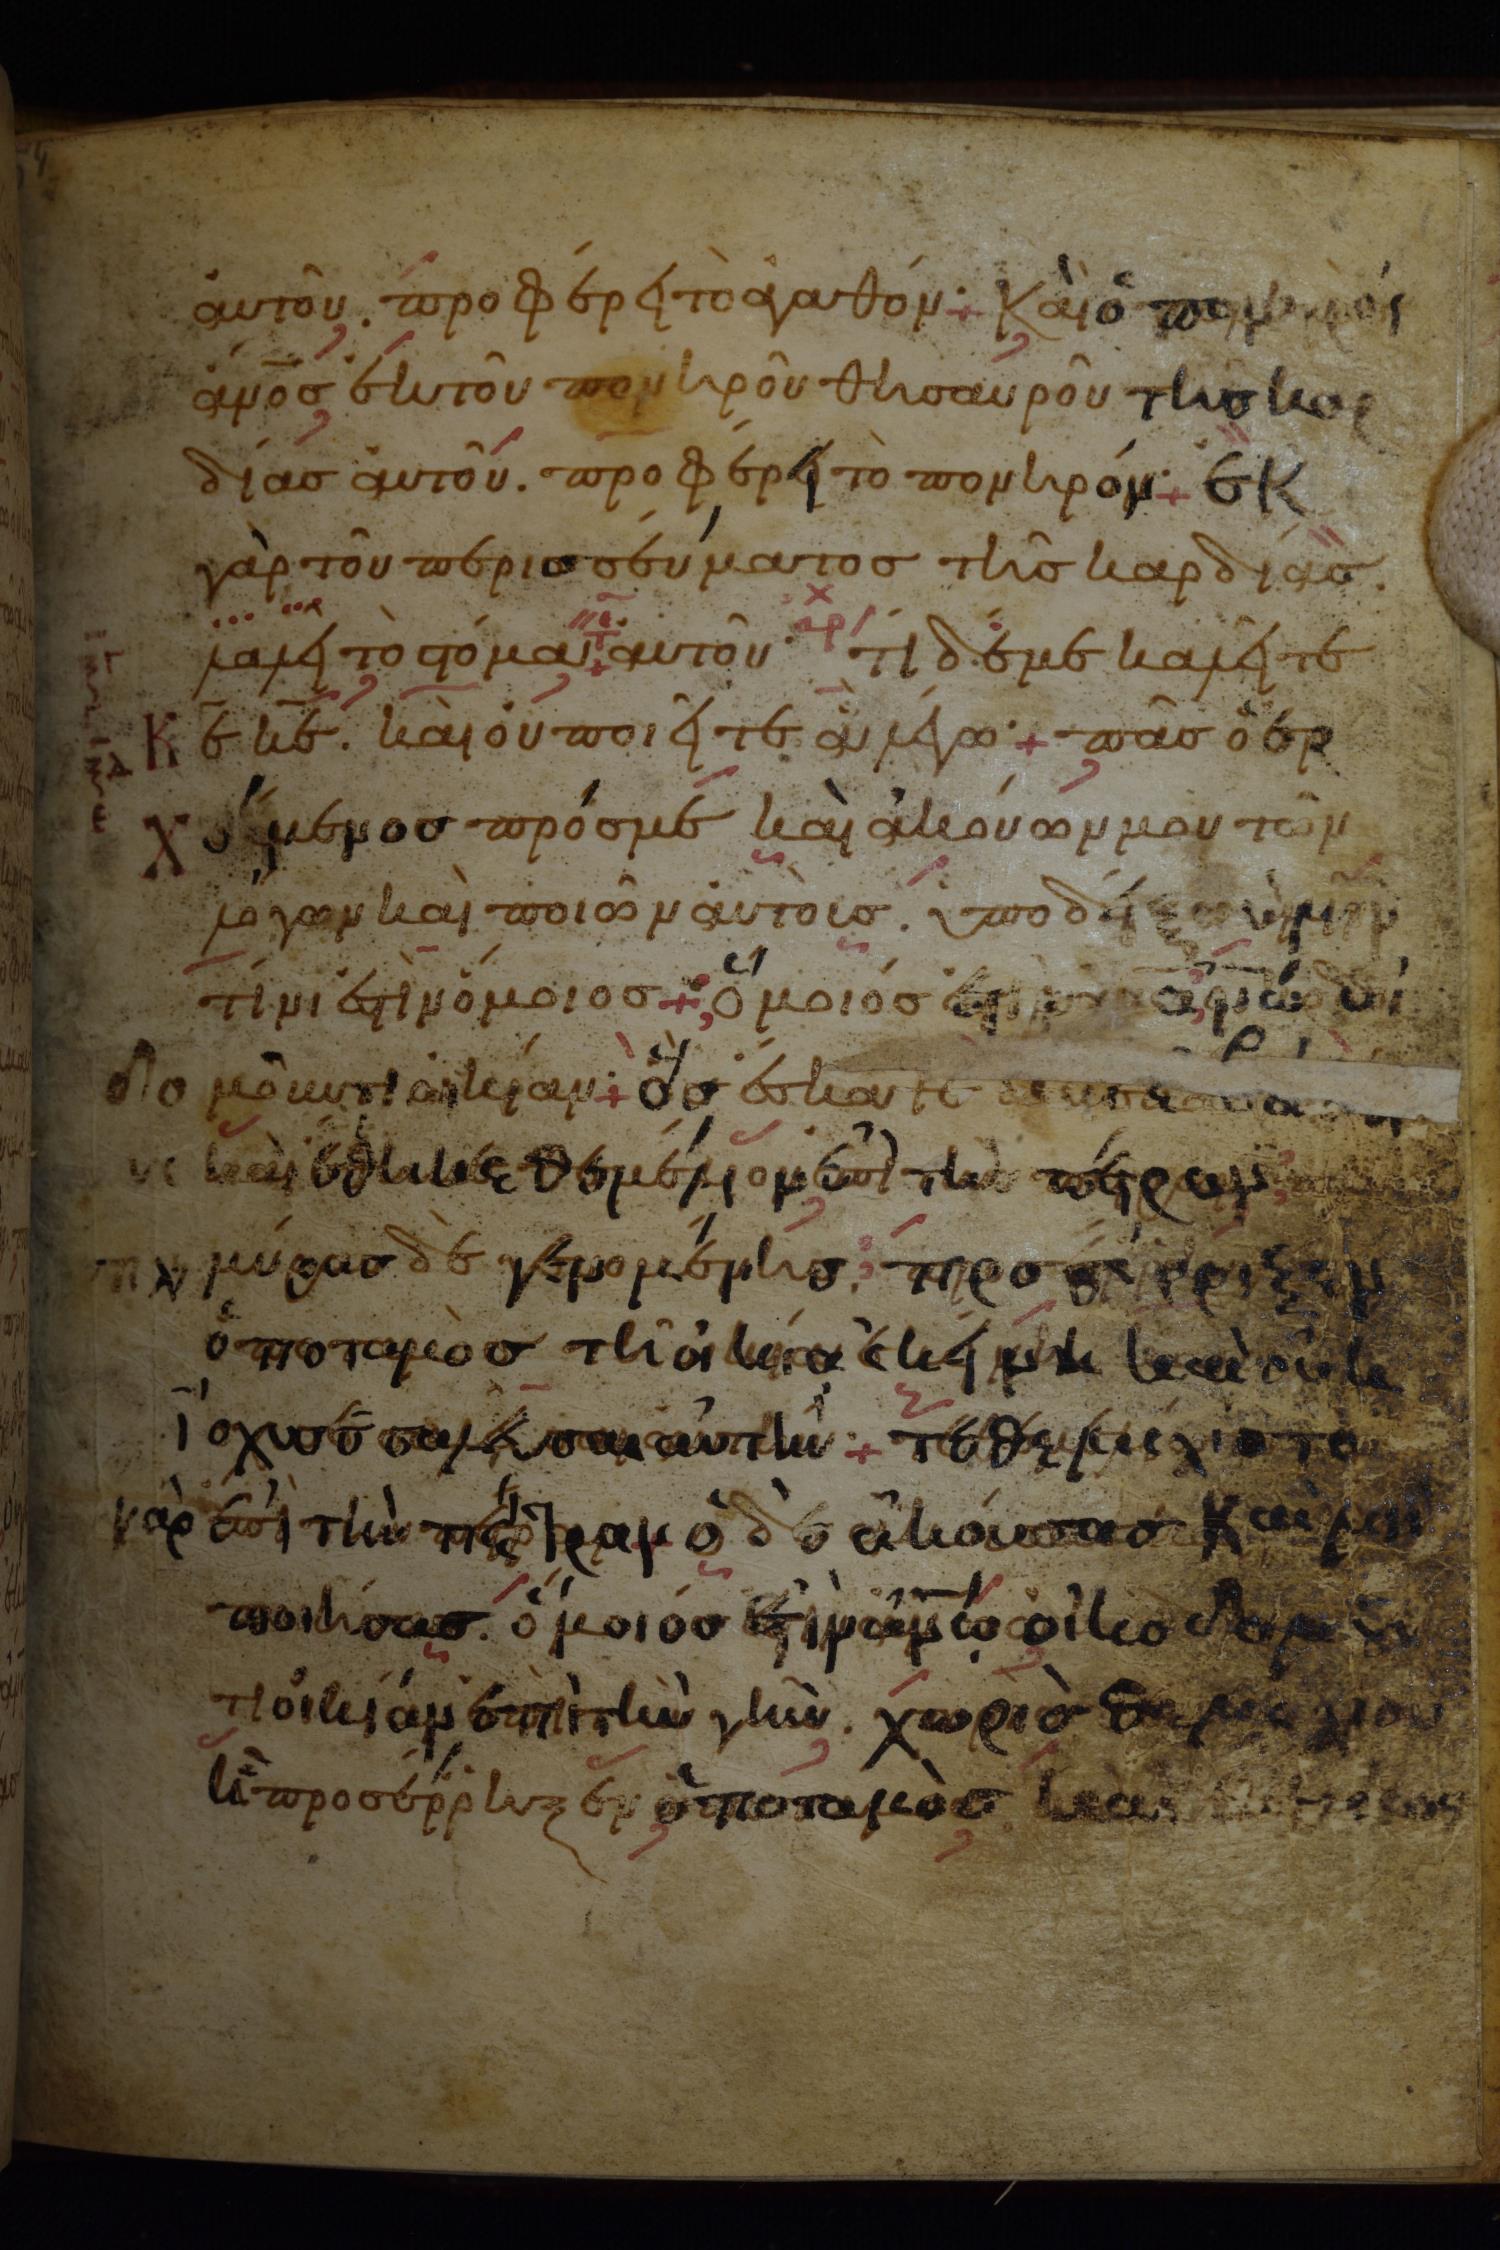 αὐτοῦ. προφέρει τὸ ἀγαθόν· + Καὶ ὁ πονηρός
ἄν̅ο̅σ̅ ἐκ τοῦ πονηροῦ θησαυροῦ τῆς καρ
δίας αὐτοῦ. προφέρει τὸ πονηρόν· + ἐκ
γὰρ τοῦ περισσεύματος τῆς καρδίας.
λαλεῖ τὸ στόμα αὐτοῦ· τί δέ με καλεῖτε
κ̅ε̅ κ̅ε̅. καὶ οὐ ποιεῖτε ἃ λέγω· + πᾶς ὁ ἐρ
χόμενος πρός με καὶ ἀκούων μου τῶν
λόγων καὶ ποιῶν αὐτοὺς. ὑποδείξω ὑμῖν
τίνι ἐστὶν ὅμοιος + ὅμοιός ἐστιν α̅ν̅ω̅ οἰ
κοδομοῦντι οἰκίαν· + ὃς ἔσκαψε
καὶ ἔθηκε θεμέλιον ἐπὶ τὴν πέτραν
πλημμύρας δὲ γενομένης. προσέρρηξεν
ὁ ποταμὸς τῇ οἰκίᾳ ἐκείνη καὶ οὐκ
ἴσχυσε σαλεῦσαι αὐτήν· + τεθεμελίωτο
γὰρ ἐπὶ τὴν πέτραν ὁ δὲ ἀκούσας καὶ μὴ
ποιήσας. ὅμοιός ἐστιν α̅ν̅ω̅ οἰκοδομοῦν
τι οἰκίαν ἐπὶ τὴν γῆν. χωρὶς θεμελίου
ᾗ προσέρρηξεν ὁ ποταμὸς καὶ